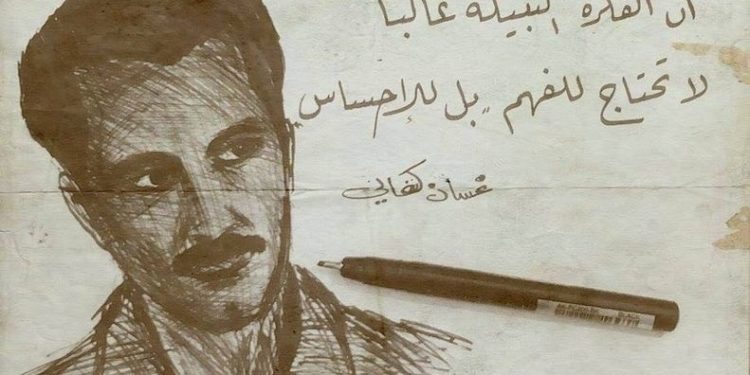 ان الفكرة النبيلة غالباً
لا تحتاج للفهم بل للإحساس
غسان كنفاني
BLACK